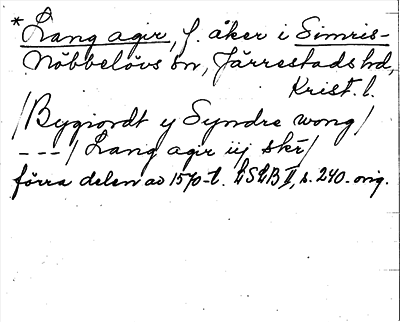 *Lang agir, f. åker i Simris-
Nöbbelövs sn, Järrestads hd,
Krist. l.
/Bygiordt y Syndre wong/
---/ Lang agir iij skr/
förra delen av 1570-t. LSLB II, s. 240. orig.